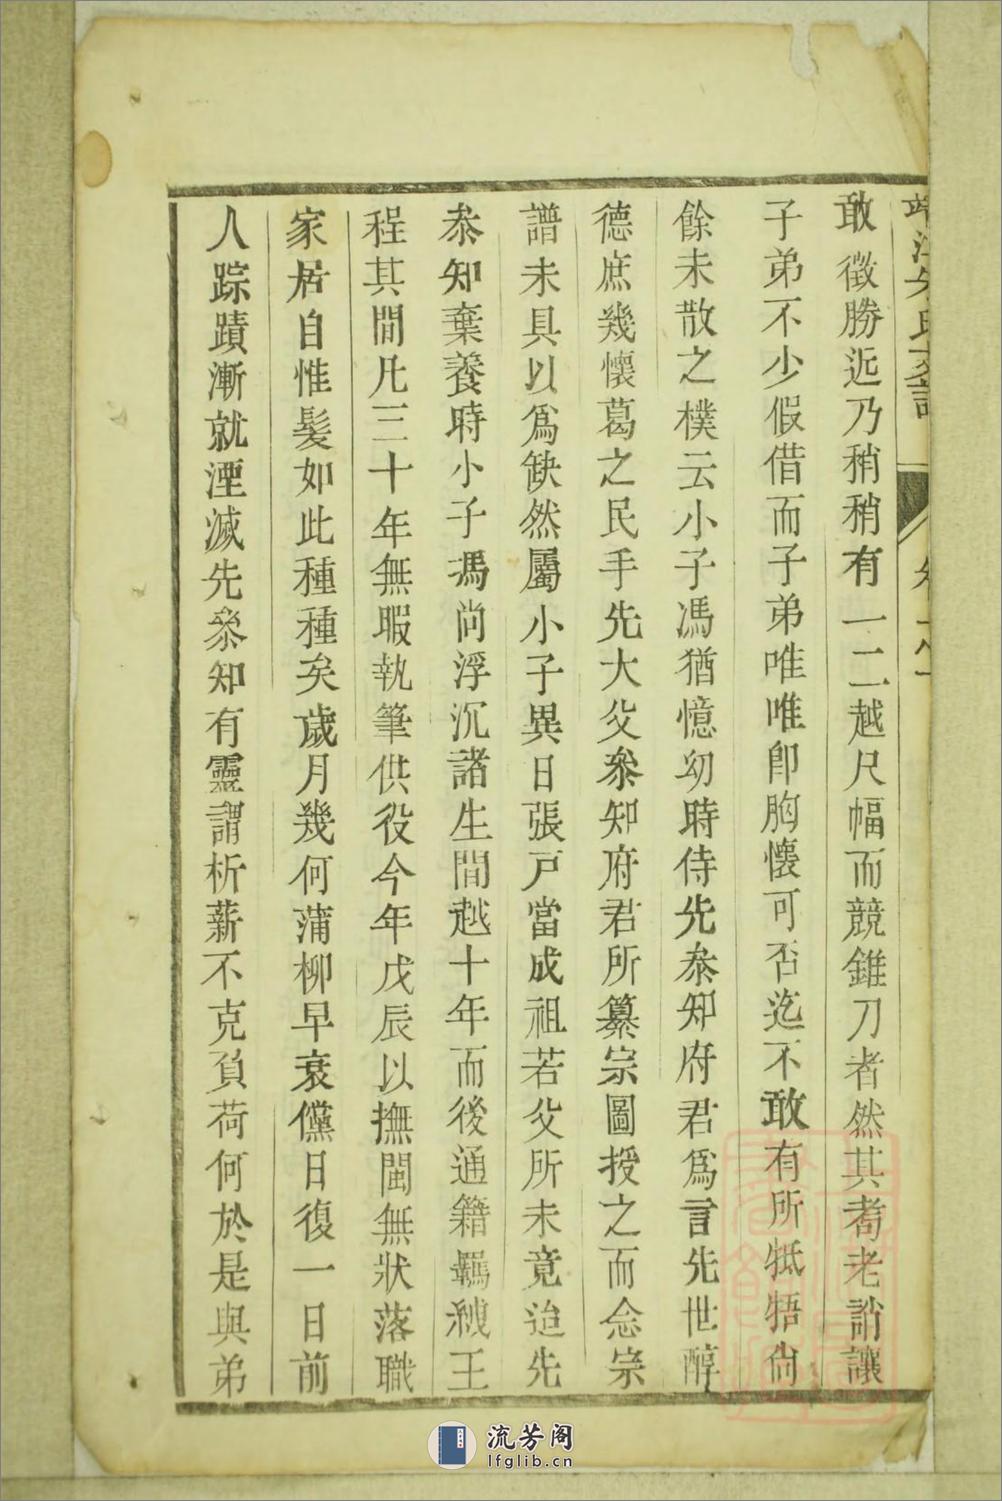 敢徵勝近乃稍稍有一二越尺幅而競錐刀者然其耈老誚讓
子弟不少假借而子弟唯唯卽胸懷可否迄不敢有所牴牾尙
餘未散之樸云小子馮猶憶幼時侍先叅知府君爲言先世醇
德庶幾懷葛之民手先大父叅知府君所纂宗圖授之而念宗
譜未具以爲缺然屬小子異日張戸當成祖若父所未竟迨先
叅知棄養時小子馮尙浮沉諸生間越十年而後通籍羈紲王
程其間凡三十年無暇執筆供役今年戊辰以撫閩無狀落職
家居自惟髮如此種種矣歲月幾何蒲柳早衰儻日復一日前
人踪蹟漸就湮滅先叅知有靈謂析薪不克負荷何於是與弟
流芳阁
lfglib.cn